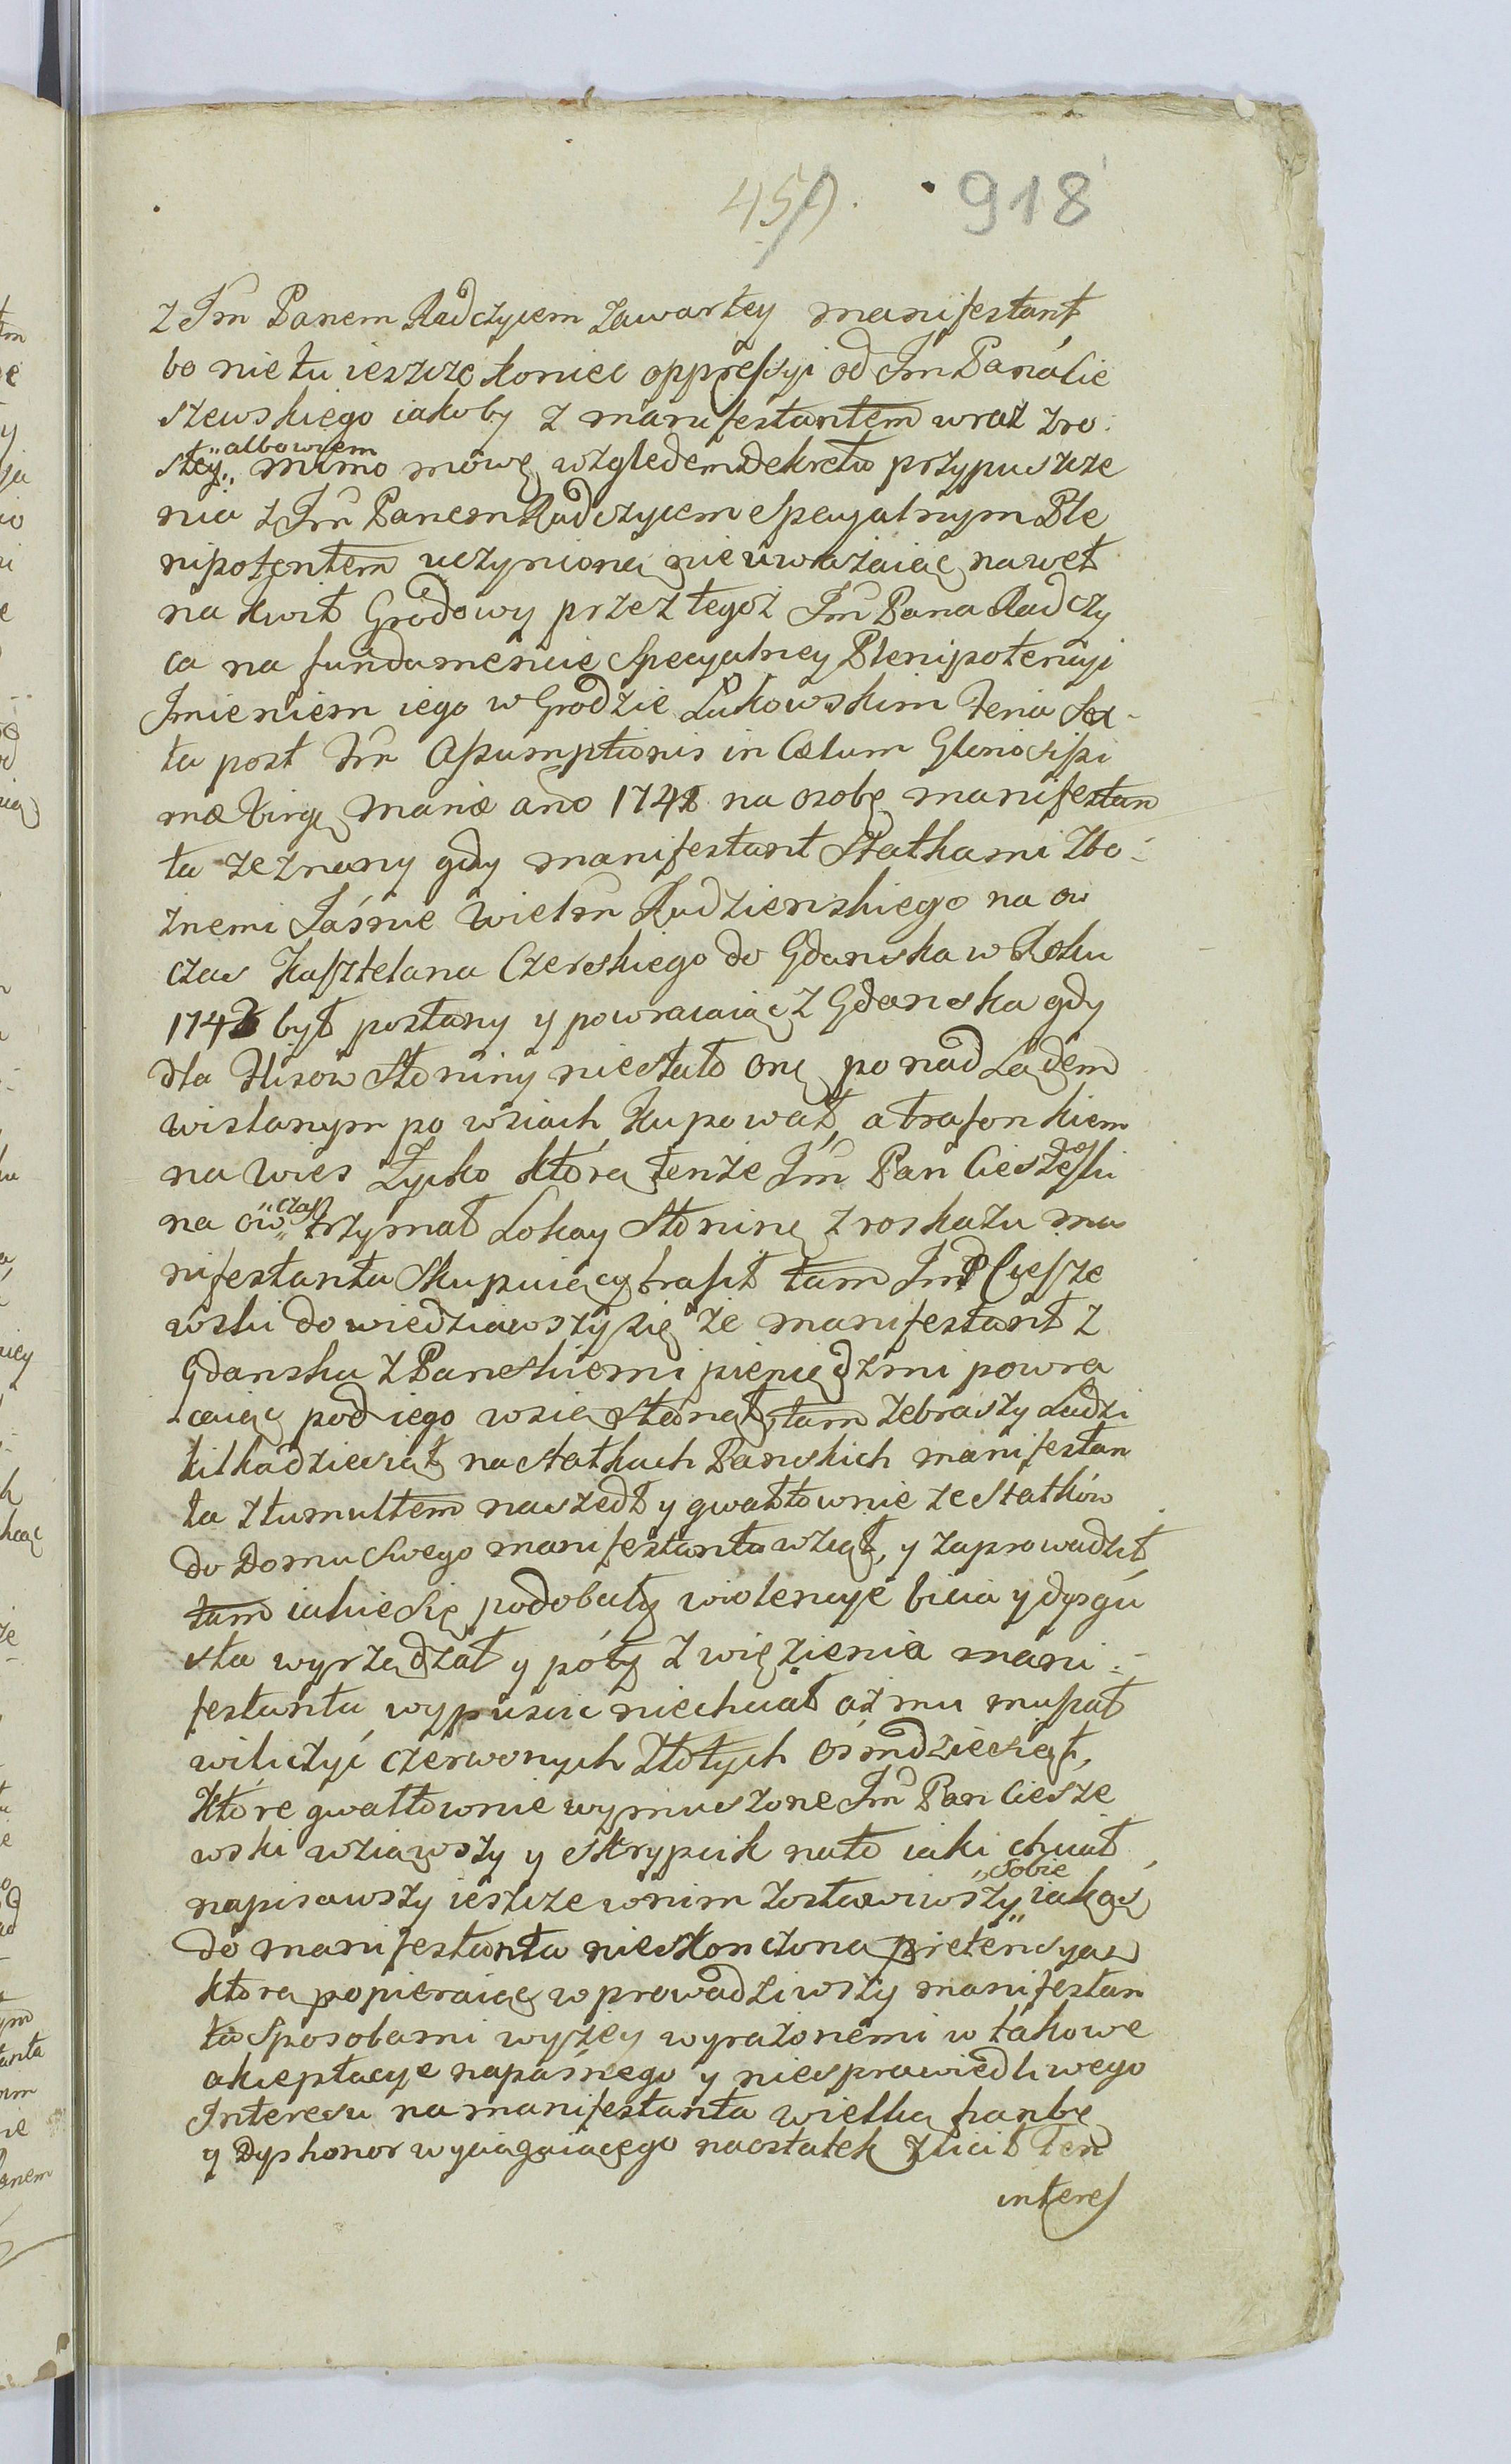 459. 918
z Jm Panem Radczycem zawartey manifestant
bo nie tu ieszcze koniec oppressyi od Jm Pana Cie
szewskiego iakoby z manifestantem wraz zro:
słey „albowiem„ mimo mowę względem Dekretu przypuszcze
nia z Jm Panem Radczycem specyalnym Ple
nipotentem uczynioną nie uważaiąc nawet
na kwit Grodowy przez tegoż Jm Pana Radczy
ca na fundamencie specyalney Plenipotencyi
Imieniem iego w Grodzie Łukowskim Feria Sex-
ta post Fm Assumptionis in Cælum Gloriosissi
mæ Virg Mariæ año 1748 na osobę manifestan
ta zeznany gdy manifestant Statkami Zbo:
żnemi Jaśnie Wielm Rudzienskiego na ow
czas Kasztelana Czerskiego do Gdanska w Roku
1743 był posłany y powracaiąc z Gdanska gdy
dla Flisow Słoniny nie stało onę ponad Lądem
wislanym po wsiach kupował, a trafonkiem
na wies Łycko którą tenże Jm Pan Cieszewski
na ow „czas„ trzymał Lokay Słoninę z roskazu ma
nifestanta skupuiący trafił tam Jm P Ciesze
wski dowiedziawszy się że manifestant z
Gdanska z Panskiemi pieniędzmi powra
caiąc pod iego wsią stanął, tam zebrawszy Ludzi
kilkadziesiąt na statkach Panskich manifestan
ta z tumultem naszedł y gwałtownie ze Statków
do Domu swego manifestanta wziął, y zaprowadził
tam iakie się podobały wiolencye bicia y dysgu
sta wyrządzał y póty z więzienia mani:
festanta wypuscic niechciał aż mu musiał
wiliczyć czerwonych Złotych ośmdziesiąt,
które gwałtownie wymuszone Jm Pan Ciesze
wski wziąwszy y skrypcik nato iaki chciał
napisawszy ieszcze wnim zostawiwszy „sobie„ iakąs
do manifestanta nieskonczoną pretensyą
którą popieraiąc wprowadziwszy manifestan
ta sposobami wyżey wyrażonemi w takowe
akceptacye napaśnego y niesprawiedliwego
Interesu na manifestanta wielką hanbę
y Dyshonor wyciągaiącego naostatek zlicił ten
interes